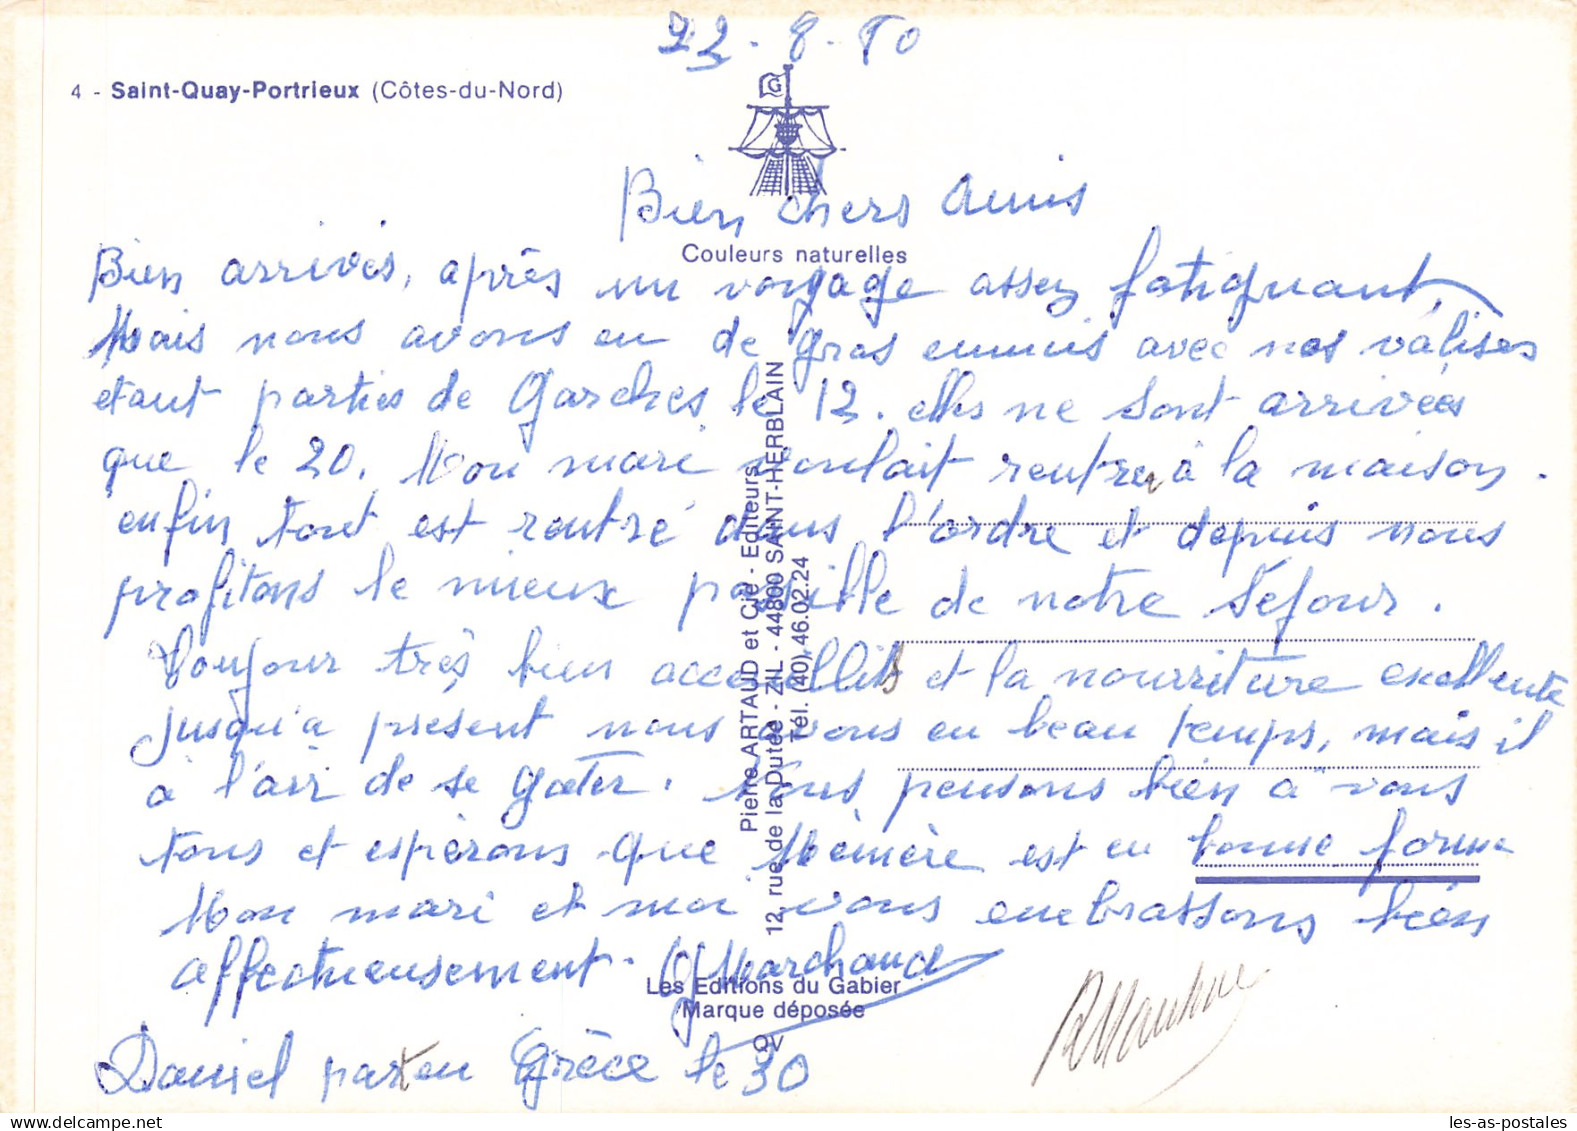 22-8-80
4 - Saint-Quay-Portrieux (Côtes-du-Nord)
G
Bien chers Amis
Couleurs naturelles
Bien arrivés, après un voyage assez fatiguant,
Mais nous avons eu de gros ennuis avec nos valises
etant parties de Garches le 12. elles ne sont arrivées
que le 20. Mon mari voulait rentrer à la maison.
enfin tout est rentré dans l'ordre et depuis nous
profitons le mieux possible de notre séjour.
Toujour très bien accueillits et la nourriture excellente
jusqu'a présent nous avons eu beau temps, mais il
a l'air de se gater. Nous pensons bien a vous
tous et espèrons que Mémère est en bonne forme
Mon mari et moi vous embrassons bien
affectueusement. G Marchand
Daniel part en Grèce le 30
Pierre ARTAUD et Cie - Editeurs
12, rue de la Dutée - ZIL - 44800 SAINT-HERBLAIN
Tél. (40) 46.02.24
Les Editions du Gabier
Marque déposée
QV
les-as-postales